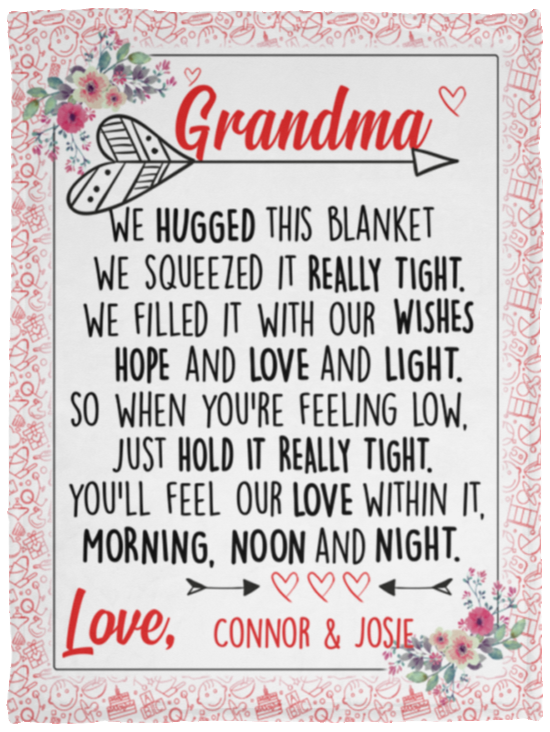 Grandma
WE HUGGED THIS BLANKET
WE SQUEEZED IT REALLY TIGHT.
WE FILLED IT WITH OUR WISHES
HOPE AND LOVE AND LIGHT.
SO WHEN YOU'RE FEELING LOW,
JUST HOLD IT REALLY TIGHT.
YOU'LL FEEL OUR LOVE WITHIN IT,
MORNING, NOON AND NIGHT.
Love, CONNOR & JOSIE